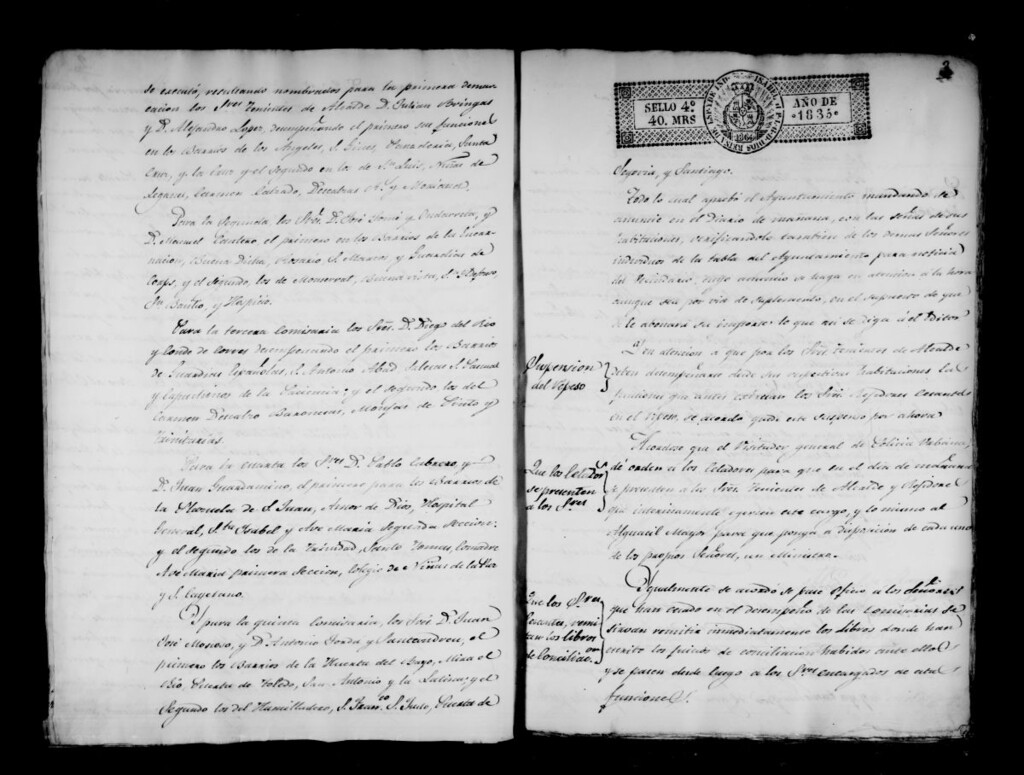 se executó, resultando nombrados para la primera demar
cacion los Sres Tenientes de Alcalde D. Julian Aringas
y D. Alejandro Lopez, desempeñando el primero sus funciones
en los Barrios de los Angeles, S. Gines, Panaderia, Santa
Cruz, y la Cruz y el Segundo en los de Sn. Luis, Niñas de
Leganes, Carmen Calzado, Descalzas Rs. y Moriana.
Para la Segunda los Sres. D. José Tomé y Ondarreta, y
D. Manuel Cavallero el primero en los Barrios de la Encar-
nacion, Buena Dicha, Rosario S. Marcos y Guardias de
Corps, y el Segundo, los de Monserrat, Buenavista, Sn. Ildefonso,
Sn. Basilio, y Hospicio.
Para la tercera Comisaria los Sres. D. Diego del Rio
y Conde de Torres desempeñando el primero los Barrios
de Guardias Españolas, S. Antonio Abad Salesas S. Pascual
y Capuchinos de la Paciencia: y el segundo los del
Carmen Descalzo Baronesas, Monjas de Pinto y
Trinitarias.
Para la cuarta los Sres D. Pablo Cabrero, y
D. Juan Guardamino, el primero para los Barrios de
la Plazuela de S. Juan, Amor de Dios, Hospital
General, Sta. Isabel y Ave Maria Segunda Seccion:
y el segundo los de la Trinidad, Santo Tomas, Comadre
Ave Maria primera Seccion, Colegio de Niñas de la Paz
y S. Cayetano.
Y para la quinta Comisaria, los Sres D. Juan
José Moroso, y D. Antonio Jorda y Santandreu, el
primero los Barrios de la Huerta del Bayo, Mira el
Rio, Puerta de Toledo, San Antonio y la Latina: y el
Segundo los del Humilladero, S. Franco. S. Justo, Puerta de
2
SELLO 4º
40. MRS
AÑO DE
1835
Segovia, y Santiago.
Todo lo cual aprobó el Ayuntamiento mandando se
anuncie en el Diario de mañana, con las señas de sus
habitaciones, verificandolo tambien de los demas Señores
individuos de la tabla del Ayuntamiento para noticia
del Vecindario, cuyo anuncio se haga en atencion a la hora
aunque sea por via de suplemento, en el supuesto de que
se le abonará su importe: lo que asi se diga á el Editor
Suspension
del Repeso
Y en atencion a que por los Sres. Tenientes de Alcalde
deben desempeñarse desde sus respectivas habitaciones las
funciones que antes exercian los Sres. Regidores
en el repeso, se acordó quede este suspenso por ahora
Que los Celadores
se presenten
a los Sres
Acordose que el Visitador general de Policia Urbana,
dé orden a los Celadores para que en el dia de mañana
se presenten a los Sres. Tenientes de Alcalde y Regidores
que interinamente egercen este cargo, y lo mismo al
Alguacil Mayor para que ponga a disposicion de cada uno
de los propios Señores, un Ministro.
Que los Sres
Cesantes, remi
tan los libros
de Conciliacon
Ygualmente se acordó se pase Oficio a los Señores
que han cesado en el desempeño de las Comisarias se
sirvan remitir inmediatamente los libros donde han
escrito los juicios de conciliacion habidos ante ellos
y se pasen desde luego a los Sres encargados de estas
funciones.